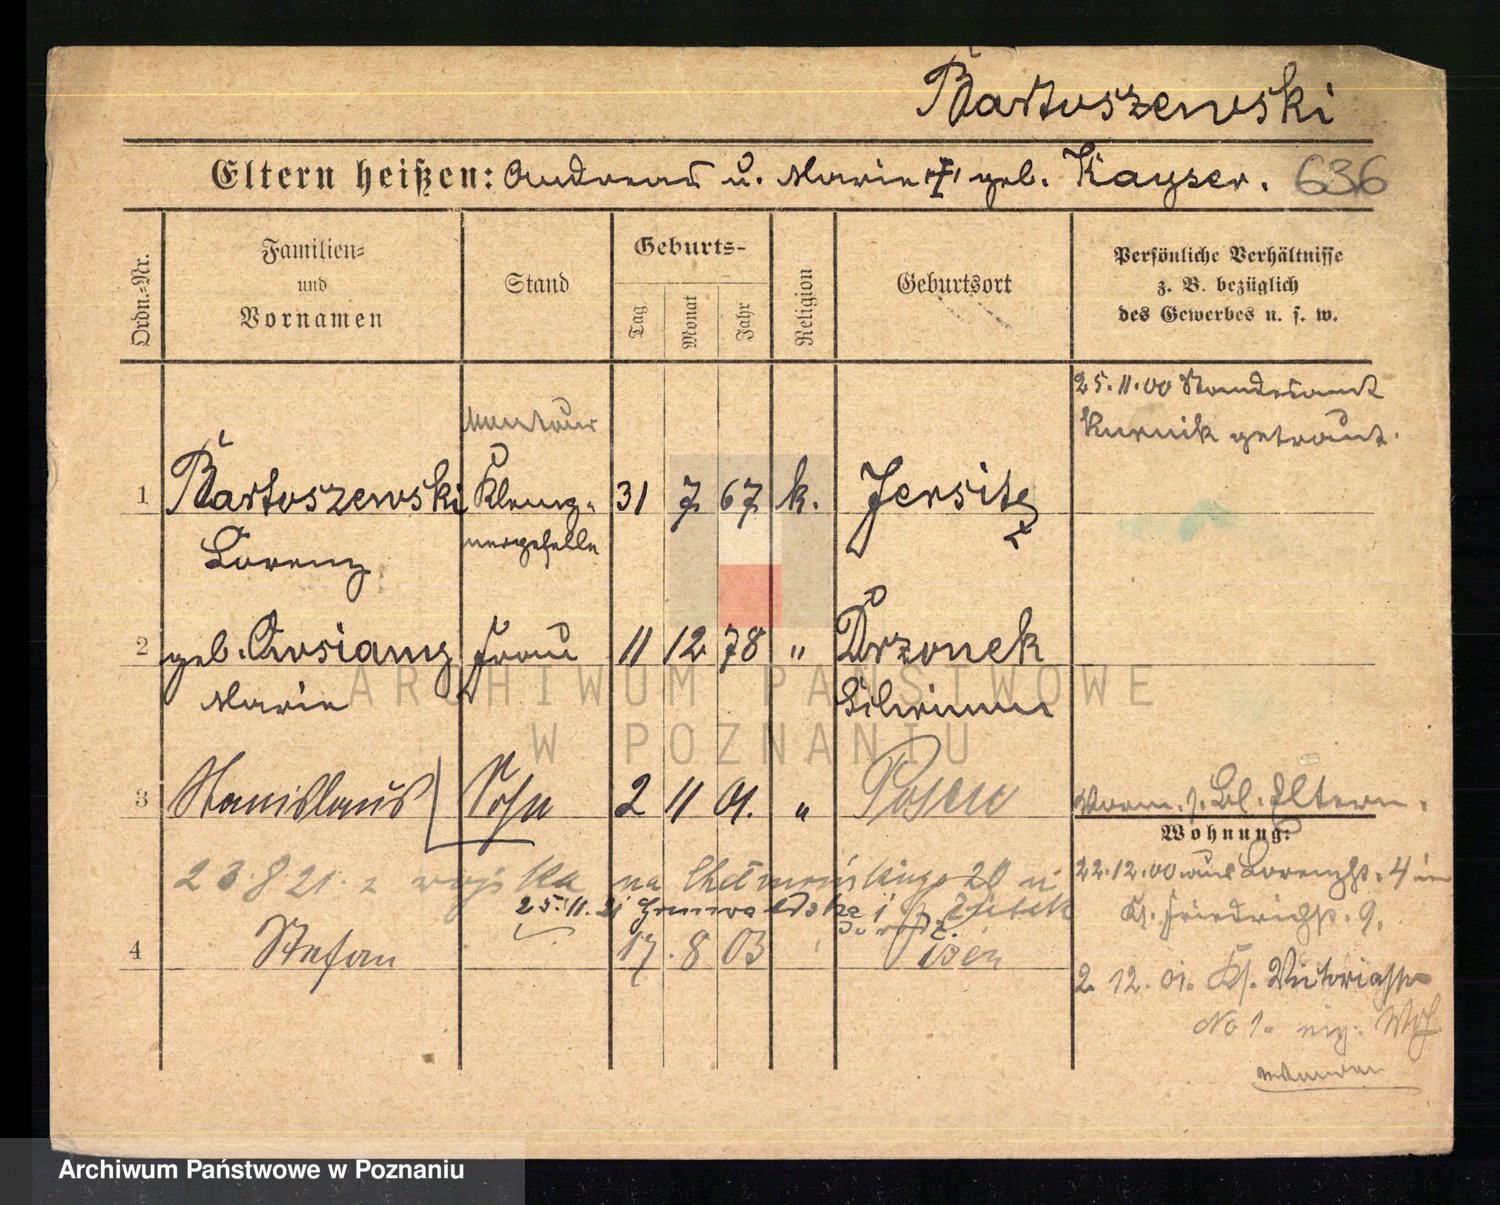 Bartoszewski
Eltern heißen: Andreas u. Marie geb. Kayser. 636
Ordn.-Nr.
Familien-
und
Vornamen
Stand
Geburts-
Tag
Monat
Jahr
Religion
Geburtsort
Persönliche Verhältnisse
z. B. bezüglich
des Gewerbes u. s. w.
25.11.00 Standesamt
Kurnik getraut.
Monteur
1 Bartoszewski Klemp- 31 7 67 k. Jersitz
Lorenz nergeselle
2 geb. Frau 11 12 78 " Drzonek
Marie Schrimm
ARCHIWUM PAŃSTWOWE
W POZNANIU
3 Stanislaus Sohn 2 11 01. " Posen
Eltern.
Wohnung:
23.8.21. z wojska na Chełmońskiego 20
22.12.00 aus Lorenzstr. 4 in
25.11.21 Grunwaldzka
Kl. Friedrichstr. 9.
4 Stefan 17. 8 03
2. 12. 01. Victoriastr
No 1.
Archiwum Państwowe w Poznaniu